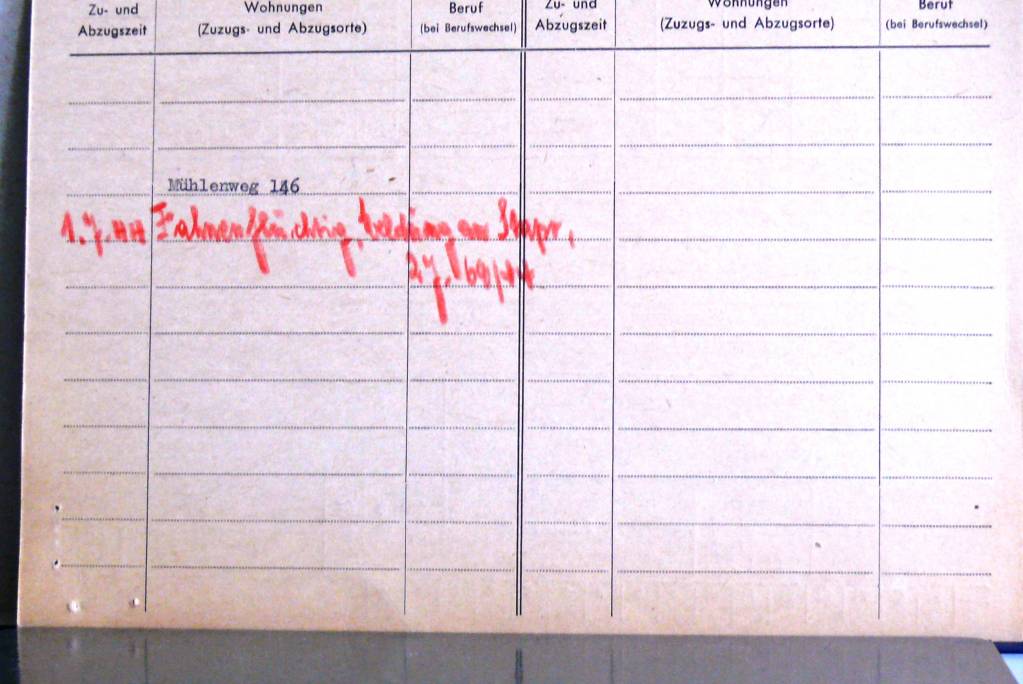 Zu- und Wohnungen Beruf Zu- und Wohnungen Beruf
Abzugszeit (Zuzugs- und Abzugsorte) (bei Berufswechsel) Abzugszeit (Zuzugs- und Abzugsorte) (bei Berufswechsel)
Mühlenweg 146
1.7.44 Fahnenflüchtig, Meldung an Stapr,